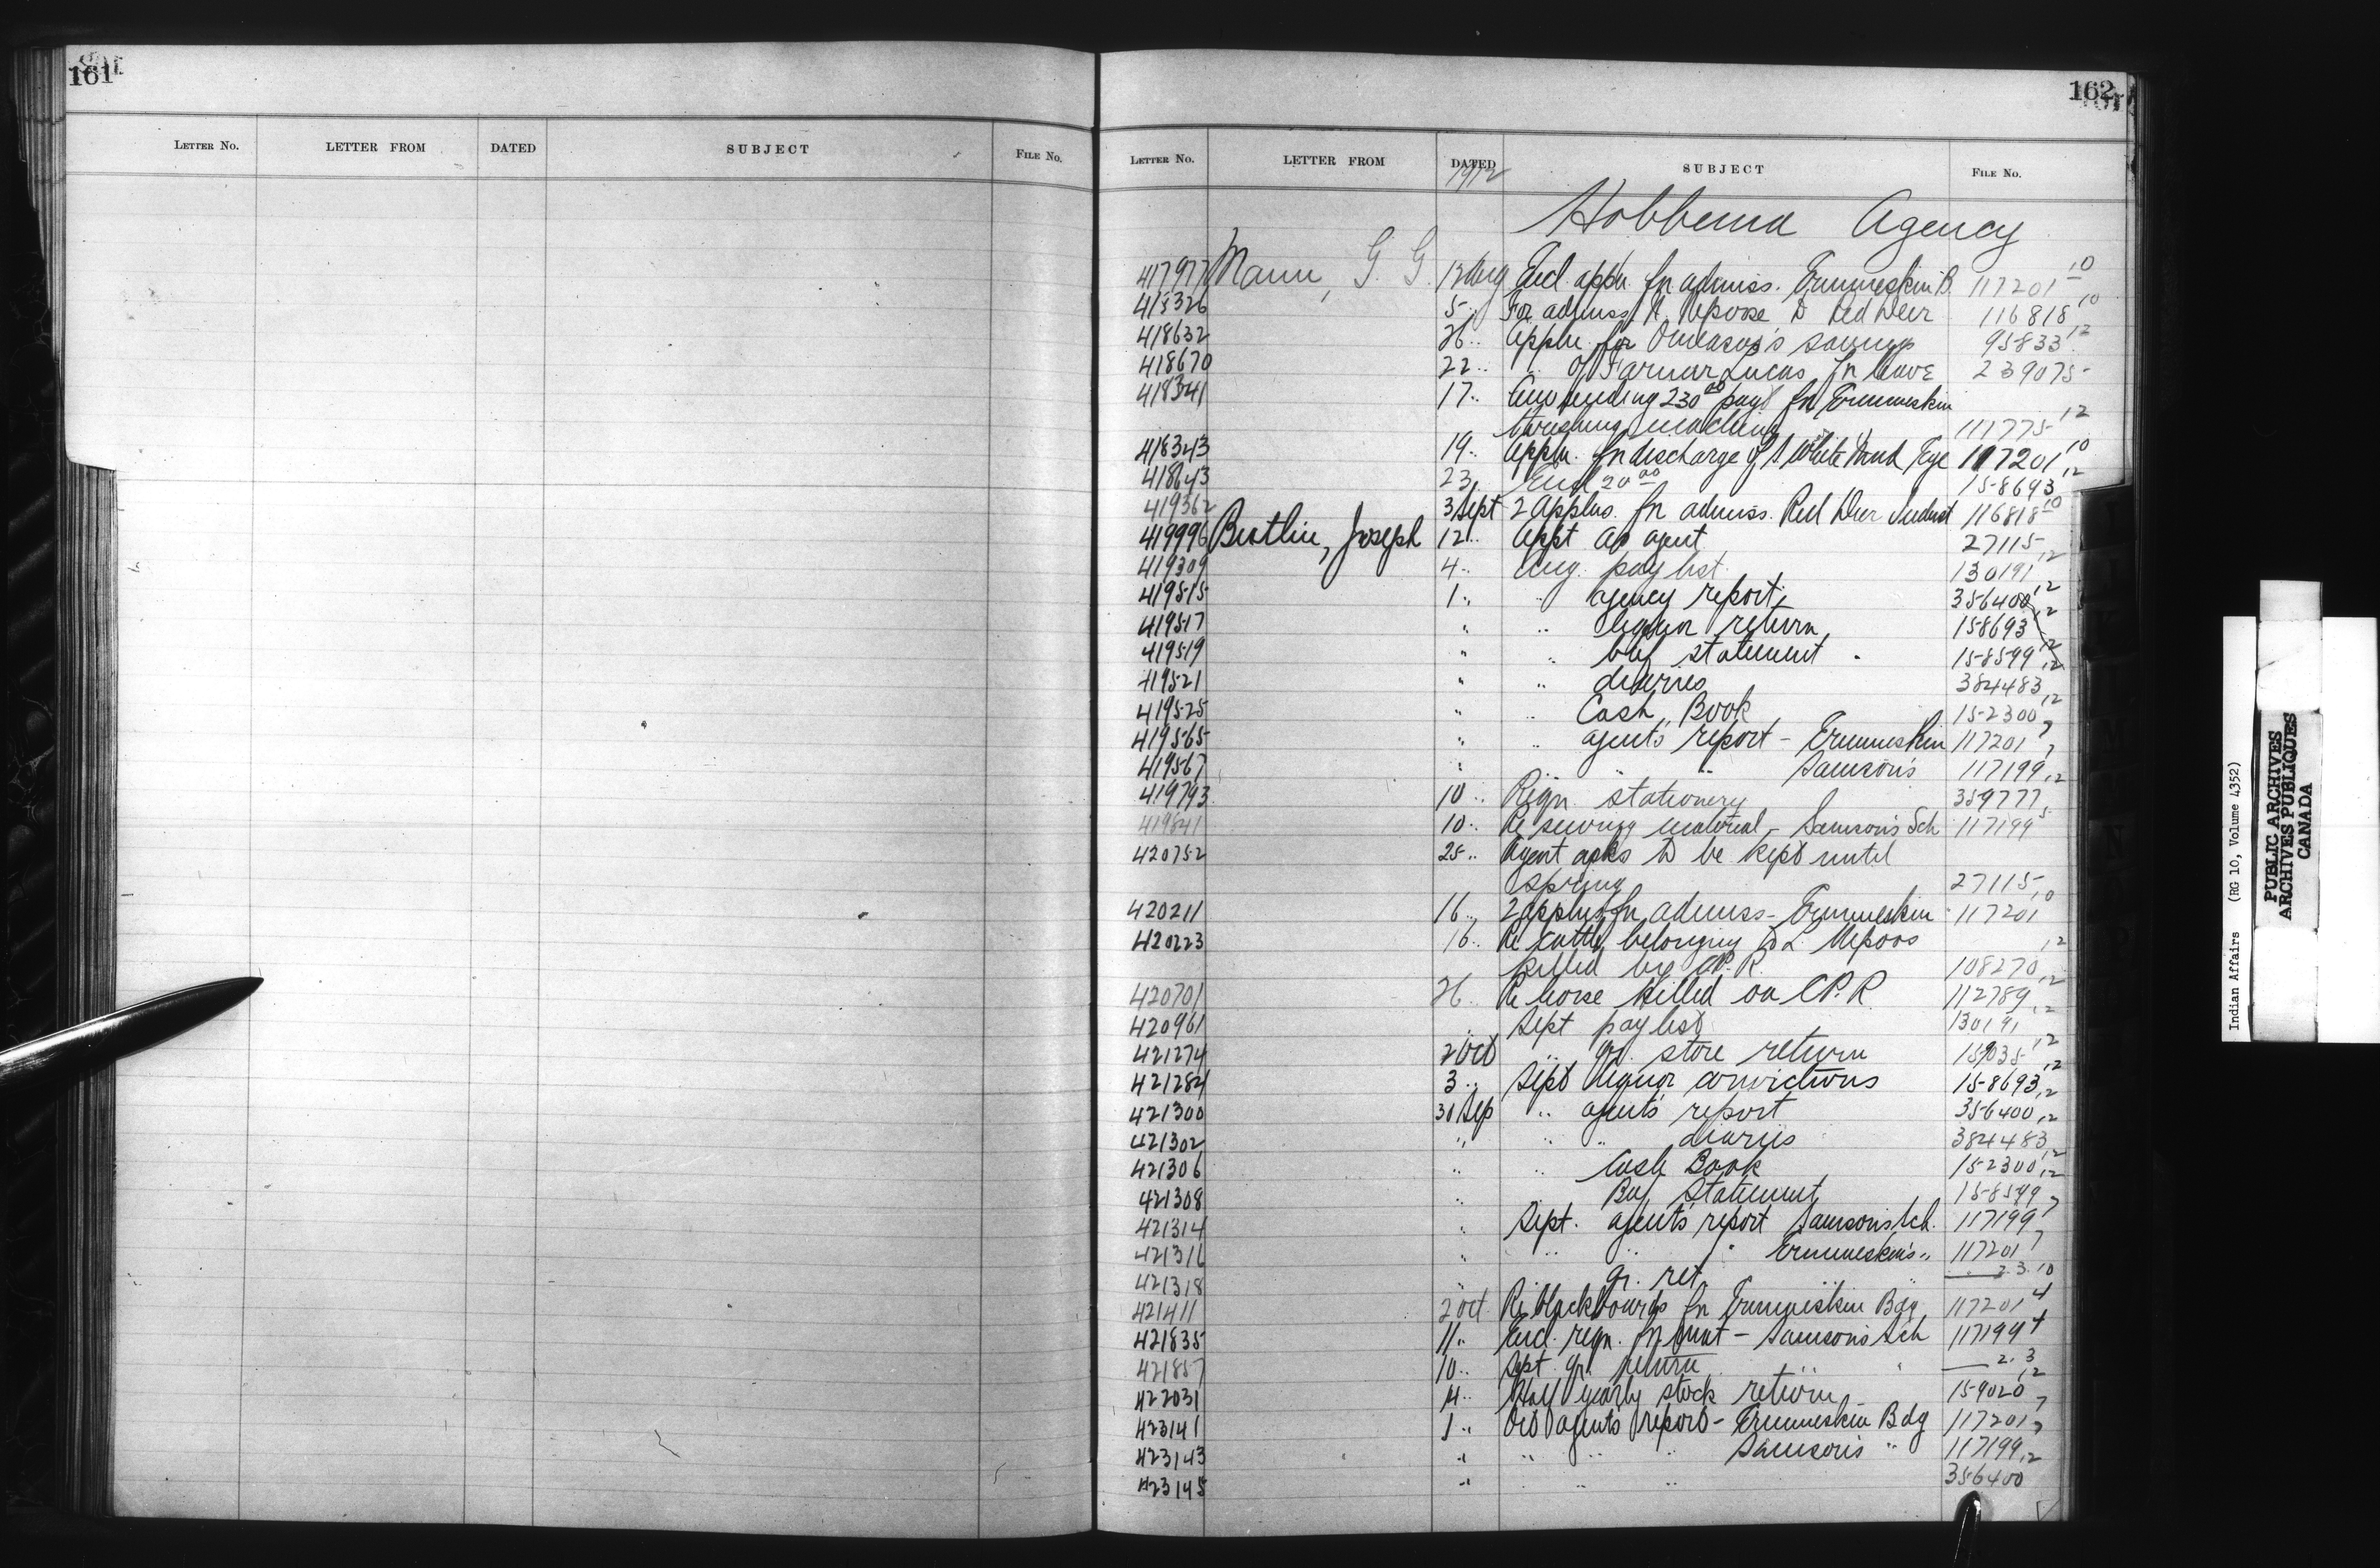 161
LETTER NO. LETTER FROM DATED SUBJECT FILE NO.
162
LETTER NO. LETTER FROM DATED SUBJECT FILE NO.
1912
Hobbema Agency
417977 Mann, G. G. 12 Aug Encl. appn. fn admiss. Ermineskin B. 117201 10
418326 5 .. For admiss. to Red Deer 116818 10
418632 26 .. Appln. for savings 95833 12
418670 22 .. .. of Farmer Lucas fn leave 239075
418341 17 .. 230 00 payt fn Ermineskin
threshing machine 111775 12
418343 19 .. Appln. fn discharge of White Eye 117201 10
418643 23 .. Encl 20 00 158693 12
419362 3 Sept 2 Applns. fn admiss. Red Deer Indust 116818 10
419996 Butlin, Joseph 12 .. Appt as agent 27115
419309 4 .. Aug. pay list 130191 12
419515 1 .. .. agency report 356400 12
419517 .. .. liquor return 158693 12
419519 .. .. beef statement 158599 12
419521 .. .. diaries 384483 12
419525 .. .. Cash Book 152300 12
419565 .. .. agents report - Ermineskin 117201 7
419567 .. .. .. Samson's 117199 7
419793 10 .. Reqn. stationery 359777 12
419841 10 .. Re sewing material - Samson's Sch 117199 5
420752 25 .. Agent asks to be kept until
spring 27115
420211 16 .. 2 applns fn admiss - Ermineskin 117201 10
420223 16 .. Re cattle belonging to L.
killed by C.P.R. 108270 12
420701 26 .. Re horse killed on C.P.R 112789 12
420961 .. Sept pay list 130191 12
421274 2 Oct .. qr. store return 159035 12
421284 3 .. Sept liquor convictions 158693 12
421300 30 Sep .. agents report 356400 12
421302 .. .. .. diaries 384483 12
421306 .. .. Cash Book 152300 12
421308 .. Beef Statement 158599 12
421314 .. Sept. agent's report Samson's Sch. 117199 7
421316 .. .. .. .. Ermineskin's .. 117201 7
421318 .. qr. ret 23.10
421411 2 Oct Re blackboards fn Ermineskin Bdg 117201 4
421835 11 .. Encl. reqn. fn - Samson's Sch 117199 4
421857 10 .. Sept qr. return 2.3
422031 4 .. Half yearly stock return 159020 12
423141 1 .. Oct agents report - Ermineskin Bdg 117201 7
423143 .. .. .. .. Samson's .. 117199 7
423145 .. .. .. 356400 12
Indian Affairs (RG 10, Volume 4352)
PUBLIC ARCHIVES
ARCHIVES PUBLIQUES
CANADA